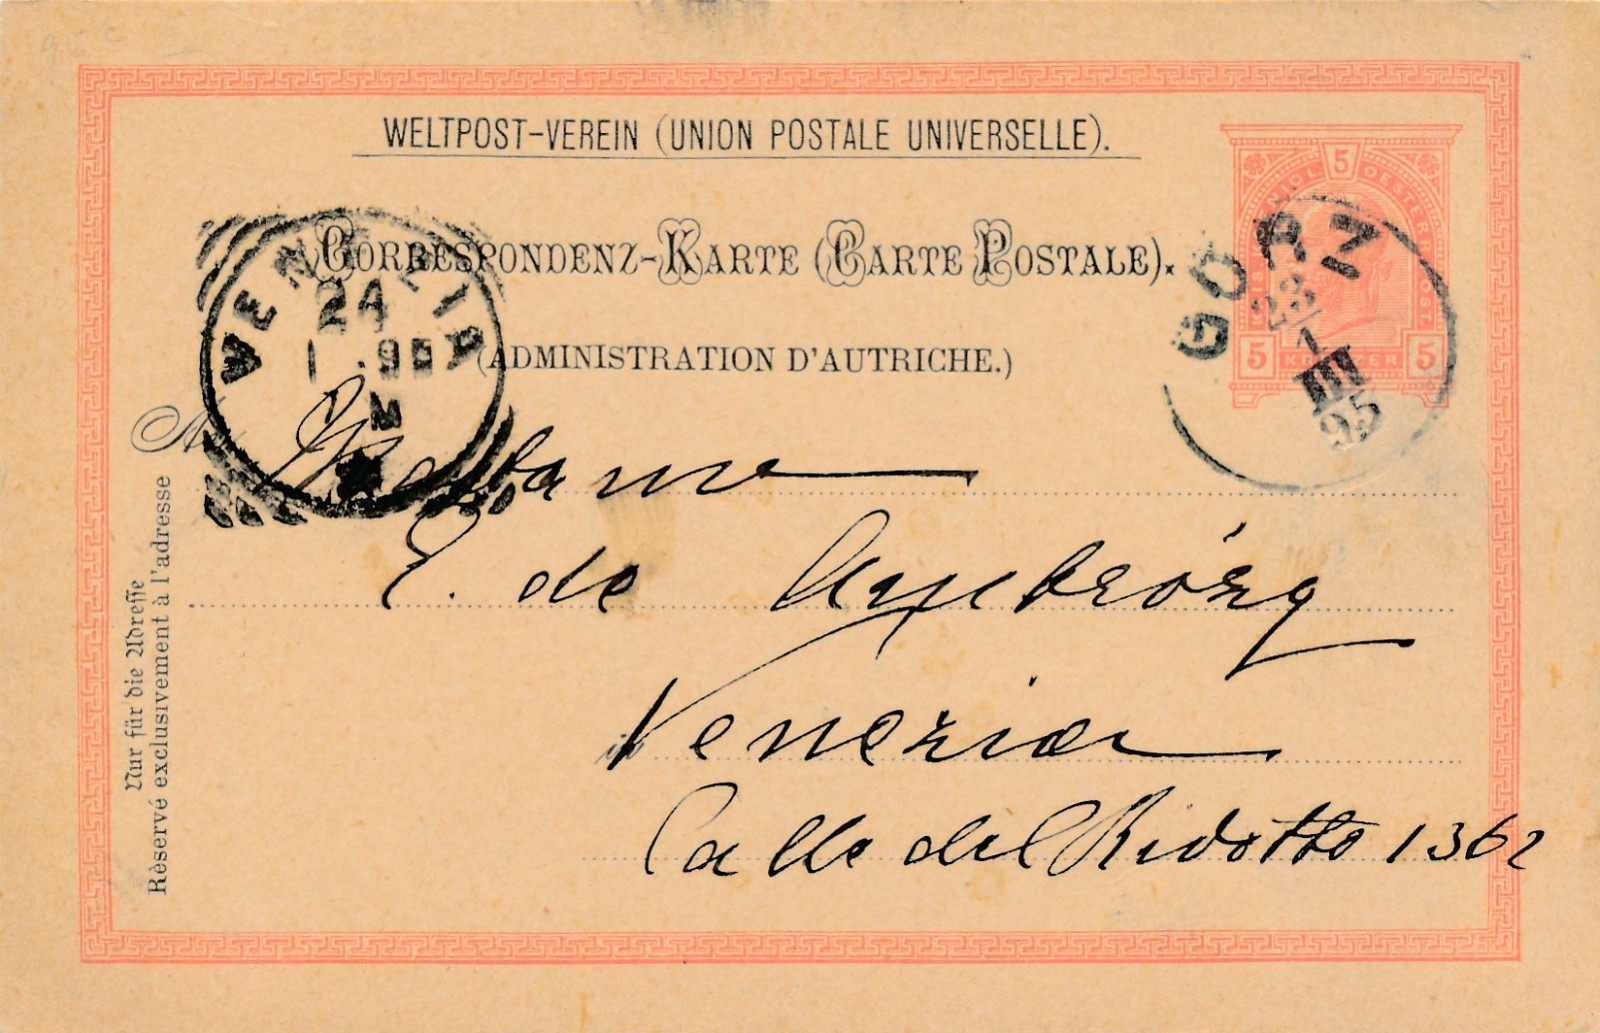 WELTPOST-VEREIN (UNION POSTALE UNIVERSELLE).
CORRESPONDENZ-KARTE (CARTE POSTALE).
(ADMINISTRATION D'AUTRICHE.)
5
5 KREUZER 5
GÖRZ
23/1
III
95
VENEZIA
24
1 .95
An
Madame
E. de Ambrózy
Venezia
in
Calle del Ridotto 1362
Nur für die Adresse
Rèservé exclusivement à l'adresse